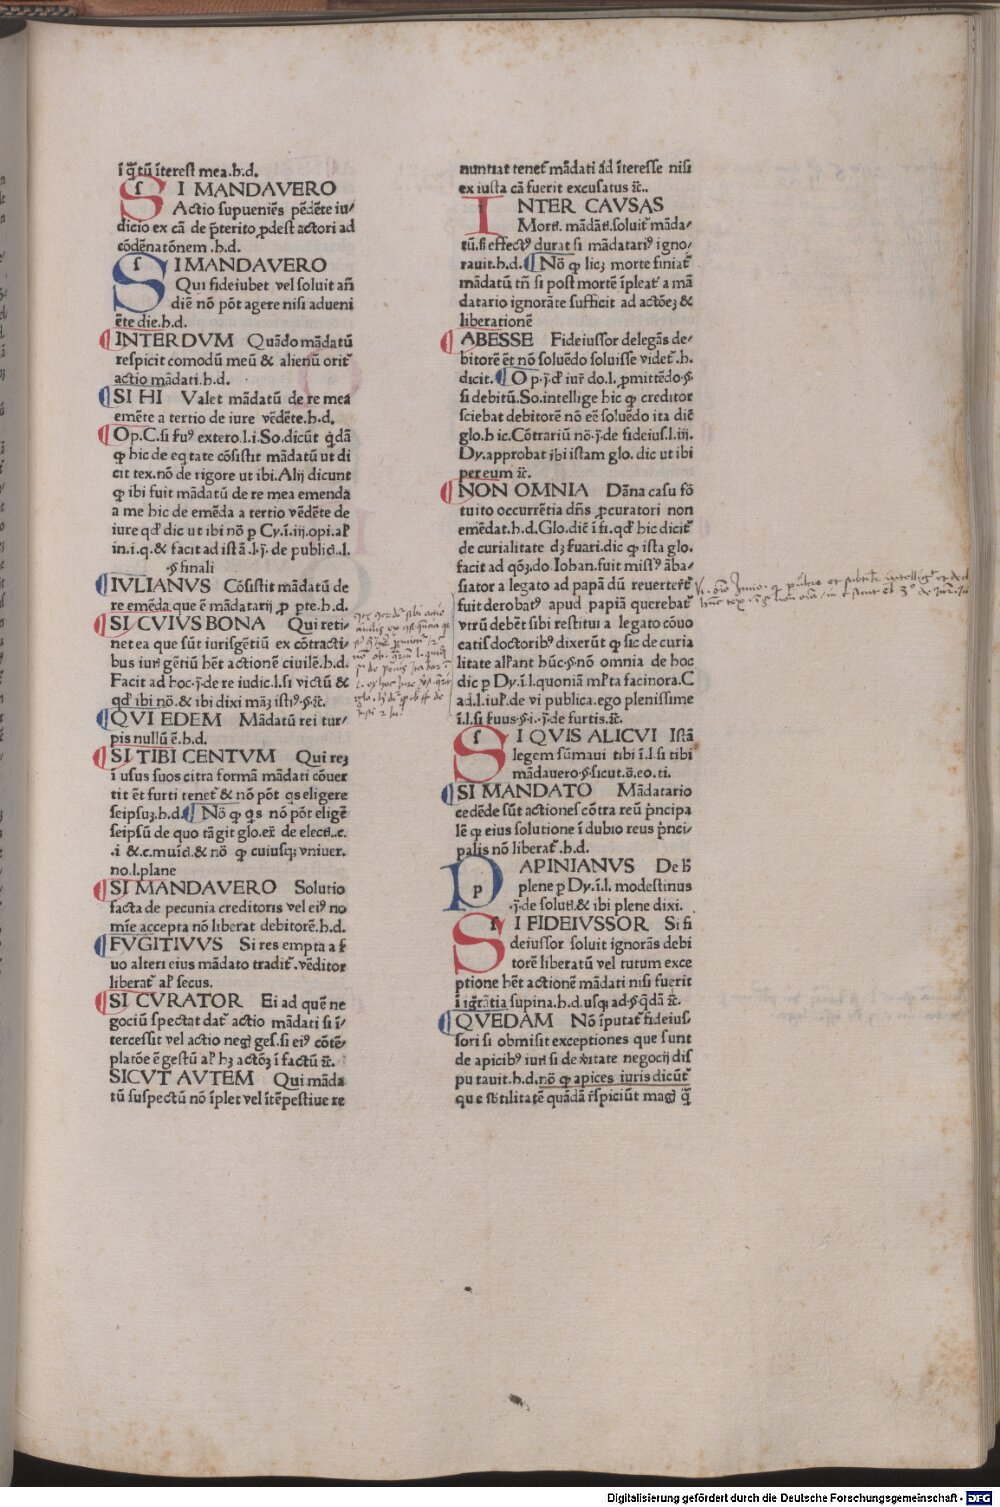 ī q̄tū īterest mea.h.d.
SI MANDAVERO
Actio supueniēs pēdēte iu/
dicio ex cā de p̄terito ꝓdest actori ad
cōdēnatōnem .h.d.
SI MANDAVERO
Qui fideiubet vel soluit añ
diē nō pōt agere nisi adueni
ēte die.h.d.
INTERDVM Quādo mādatū
respicit comodū meū & alienū orit᷑
actio mādati.h.d.
SI HI Valet mādatū de re mea
emēte a tertio de iure vēdēte.h.d.
Op.C.si ſuꝰ extero.l.i.So.dicūt q̇dā
ꝙ hic de eq̇tate cōsistit mādatū ut di
cit tex.nō de rigore ut ibi.Alij dicunt
ꝙ ibi fuit mādatū de re mea emenda
a me hic de emēda a tertio vēdēte de
iure qd̓ dic ut ibi nō p Cy.ī.iij.opi.al̓
in.i.q.& facit ad istā .l.j̄.de public̄.l.
.§ finali
IVLIANVS Cōsistit mādatū de
re emēda que ē mādatarij ꝓ pte.h.d.
SI CVIVS BONA Qui reti/
net ea que sūt iurisgētiū ex cōtracti/
bus iur̄ gētiū hēt actionē ciuilē.h.d.
Facit ad hoc.j̄.de re iudic.l.si victū &
qd̓ ibi nō.& ibi dixi māꝫ istiꝰ.§.ĩc.
QVI EDEM Mādatū rei tur/
pis nullū ē.h.d.
SI TIBI CENTVM Qui reꝫ
ī usus suos citra formā mādati cōuer
tit ēt furti tenet᷑ & nō pōt qs eligere
seipsuꝫ.h.d. Nō ꝙ qs nō pōt eligē
seipsū de quo tāgit glo.eꝫ de electi..c.
.i &.c.muīci.& nō ꝙ cuiusqꝫ vniuer.
no.l.plane
SI MANDAVERO Solutio
facta de pecunia creditoris vel eiꝰ no
mīe accepta nō liberat debitorē.h.d.
FVGITIVVS Si res empta a ſ
uo alteri eius mādato tradit᷑.vēditor
liberat᷑ al̓ secus.
SI CVRATOR Ei ad quē ne
gociū spectat dat᷑ actio mādati si ī/
tercessit vel actio neg̓ ges.si eiꝰ cōtē/
platōe ē gestū al̓ hꝫ actōꝫ ī factū ĩc.
SICVT AVTEM Qui māda
tū suspectū nō īplet vel ītēpestiue re
nuntiat tenet᷑ mādati ad īteresse nisi
ex iusta cā fuerit excusatus ĩc..
INTER CAVSAS
Morti. mādāti.soluit᷑ māda/
tū.ſi effectꝰ durat si mādatariꝰ igno/
rauit.h.d. Nō ꝙ licꝫ morte finiat᷑
mādatū tñ si post mortē īpleat᷑ a mā
datario ignorāte sufficit ad actōeꝫ &
liberationē
ABESSE Fideiussor delegās de/
bitorē ēt nō soluēdo soluisse videt᷑.h.
dicit. Op.j̄.d̓ iur̄ do.l.ꝓmittēdo.§
si debitū.So.intellige hic ꝙ creditor
sciebat debitorē nō eē soluēdo ita dic̄
glo.hic.Cōtrariū nō.j̄.de fideius.l.iij.
Dy.approbat ibi istam glo. dic ut ibi
per eum ĩc.
NON OMNIA Dāna casu fō
tuito occurrētia dn̄s ꝓcuratori non
emēdat.h.d.Glo.dic̄ ī fi.qd̓ hic dicit᷑
de curialitate dꝫ ſuari.dic ꝙ ista glo.
facit ad qōꝫ.do.Iohan.fuit missꝰ āba/
siator a legato ad papā dū reuerter̄t᷑
fuit derobatꝰ apud papiā querebat᷑
vtrū debēt sibi restitui a legato cōuo
catis doctoribꝰ dixerūt ꝙ sic de curia
litate al̓ant hūc.§.nō omnia de hoc
dic p Dy.ī.l.quoniā ml̓ta facinora.C
ad.l.iul̓.de vi publica.ego plenissime
ī.l.si ſuus.§.i.j̄.de furtis.ĩc.
SI QVIS ALICVI Istā
legem sūmaui tibi ī.l.si tibi
mādauero.§.sicut.s̄.eo.ti.
SI MANDATO Mādatario
cedēde sūt actiones cōtra reū p̄ncipa
lē ꝙ eius solutione ī dubio reus p̄nci/
palis nō liberat᷑.h.d.
PAPINIANVS De h̓
plene p Dy.ī.l. modestinus
.j̄.de soluti.& ibi plene dixi.
SI FIDEIVSSOR Si fi
deiussor soluit ignorās debi
torē liberatū vel tutum exce
ptione hēt actionē mādati nisi fuerit
ī igr̄atia supina.h.d.usqꝫ ad.§ q̇dā ĩc.
QVEDAM Nō īputat᷑ fideius/
sori si obmisit exceptiones que sunt
de apicibꝰ iuri si de v̓itate negocij dis
putauit.h.d.nō ꝙ apices iuris dicūt᷑
que sb̓tilitatē quādā r̄spiciūt mag̓ q̄
Digitalisierung gefördert durch die Deutsche Forschungsgemeinschaft - DFG